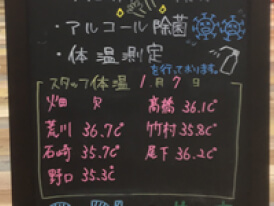 ・アルコール除菌
・体温測定
を行っております。
スタッフ体温 1月7日
畑 欠
高橋 36.1℃
荒川 36.7℃
竹村 35.8℃
石崎 35.7℃
尾下 36.2℃
野口 35.3℃